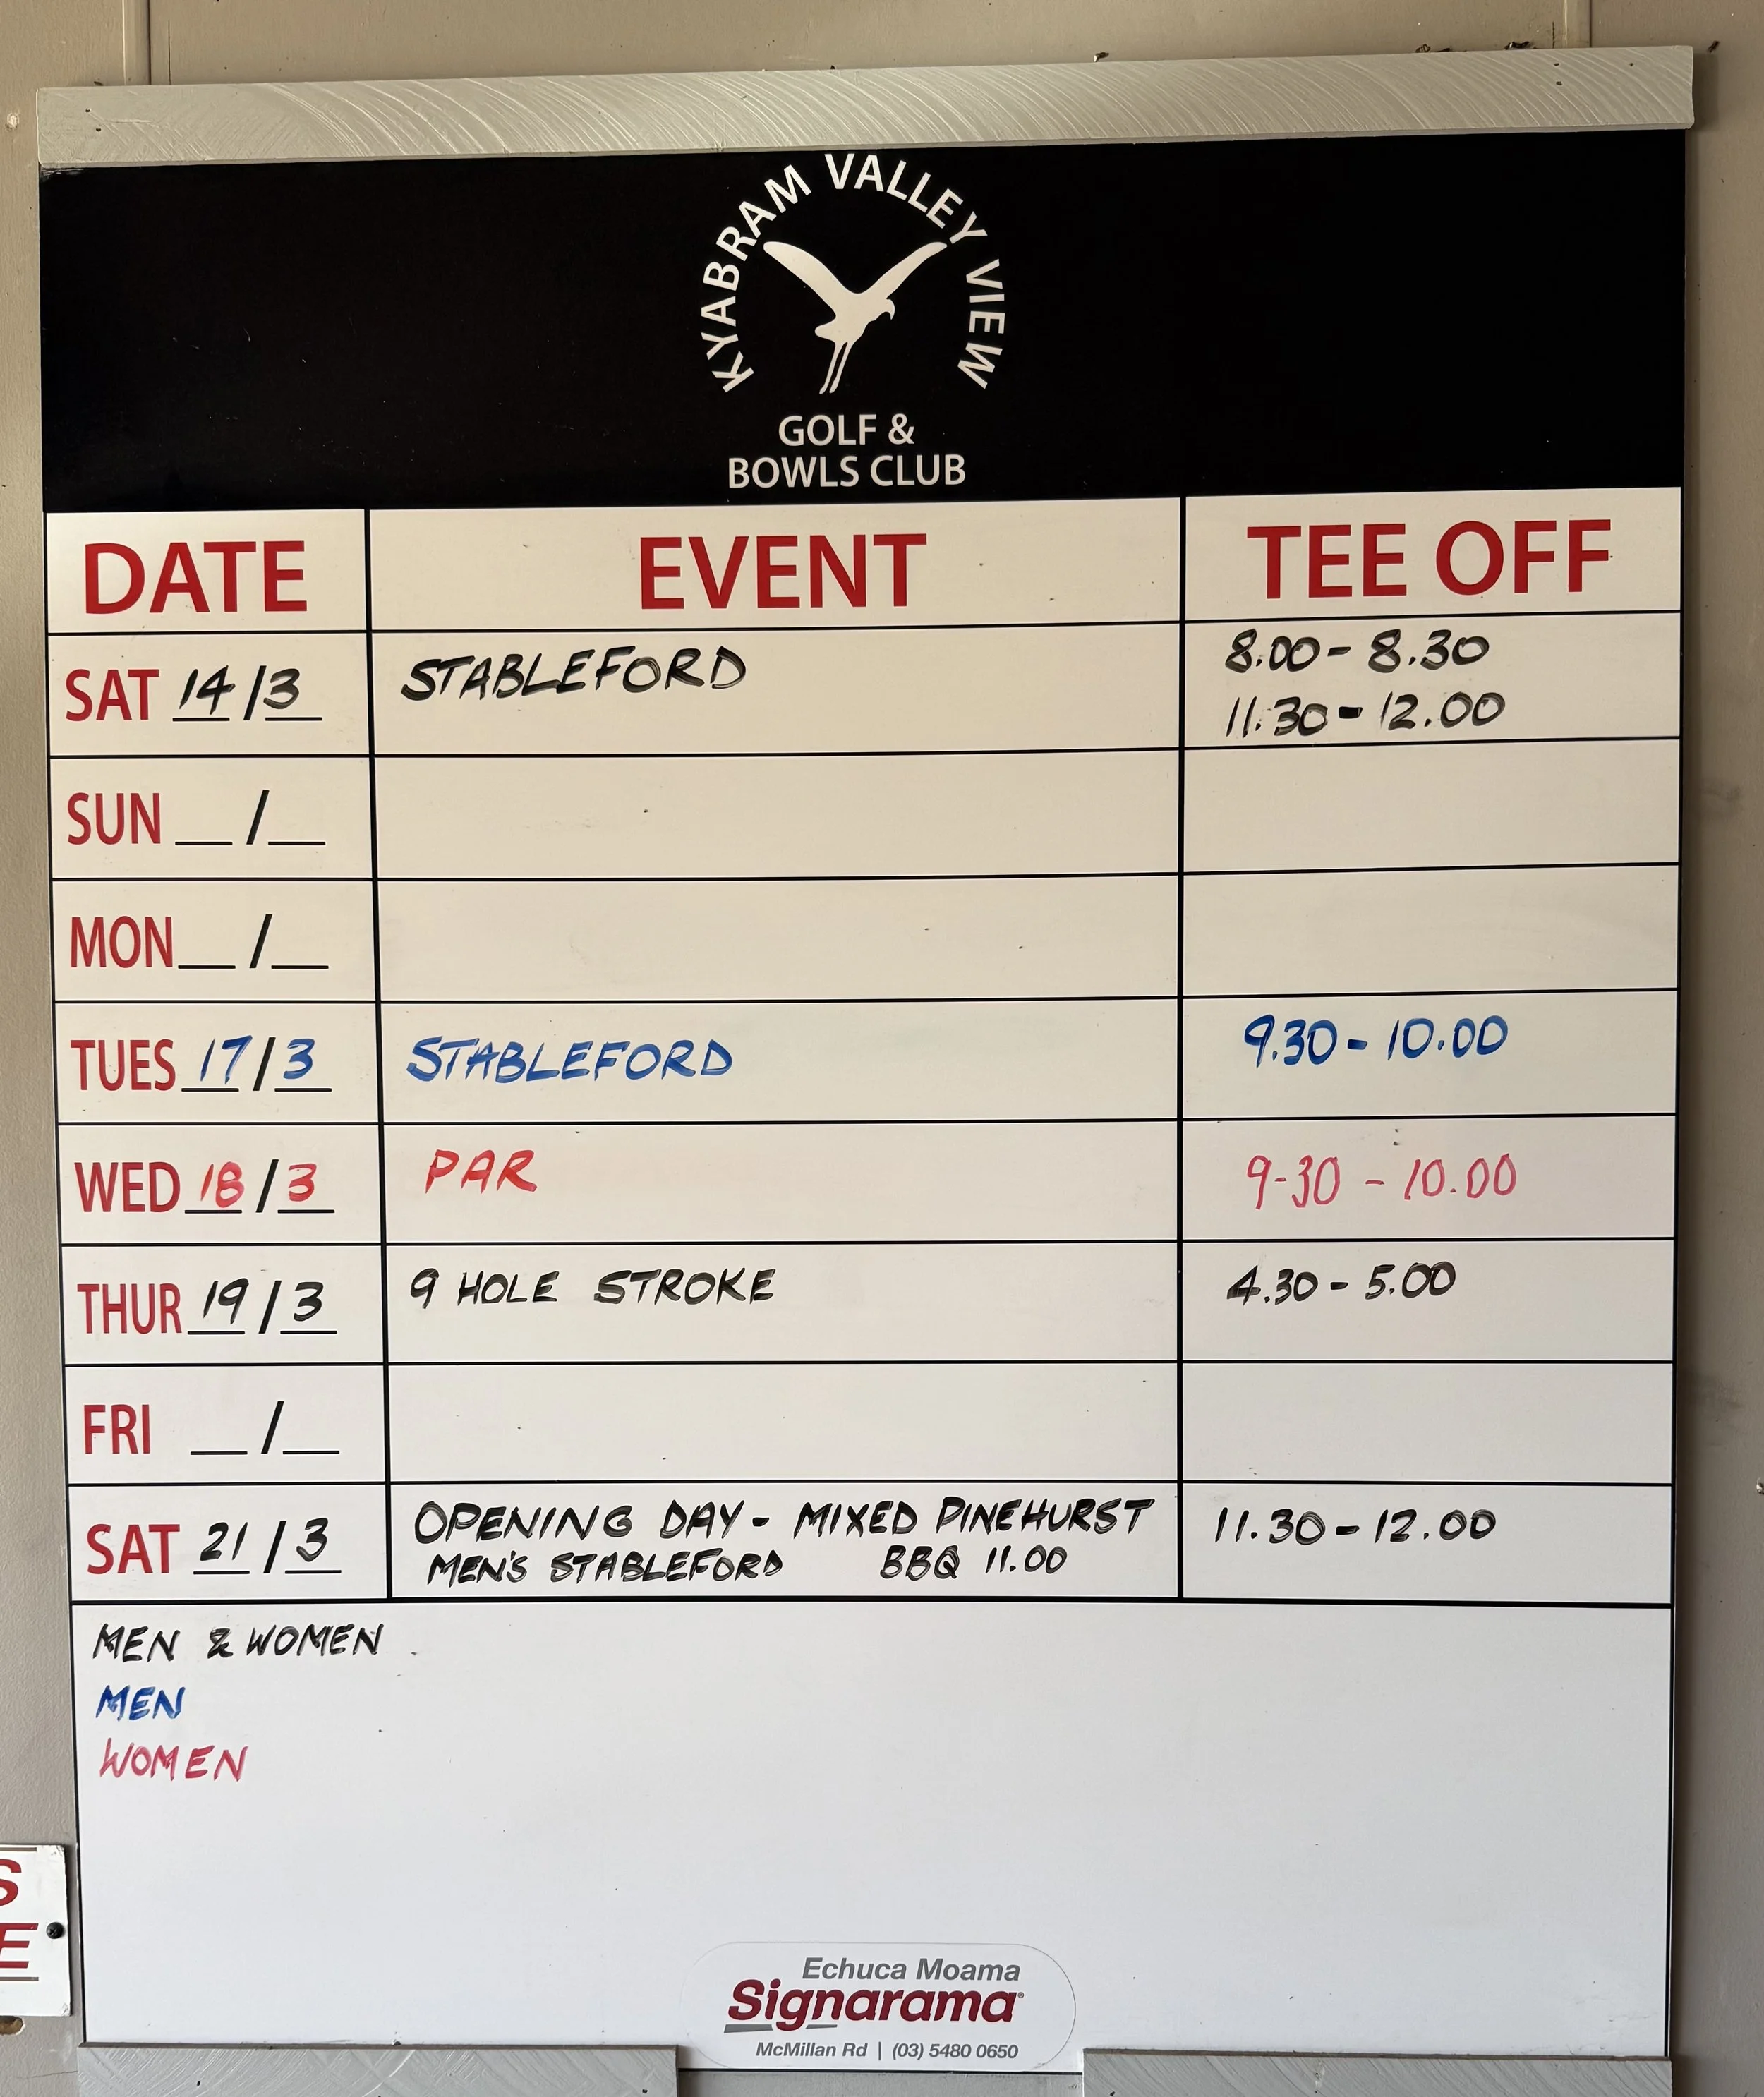 KYABRAM VALLEY VIEW
GOLF &
BOWLS CLUB
DATE EVENT TEE OFF
SAT 14/3 STABLEFORD 8.00 - 8.30
11.30 - 12.00
SUN __/__
MON__/__
TUES 17/3 STABLEFORD 9.30 - 10.00
WED 18/3 PAR 9-30 - 10.00
THUR 19/3 9 HOLE STROKE 4.30 - 5.00
FRI __/__
SAT 21/3 OPENING DAY - MIXED PINEHURST 11.30 - 12.00
MEN'S STABLEFORD BBQ 11.00
MEN & WOMEN
MEN
WOMEN
S
E
Echuca Moama
Signarama®
McMillan Rd | (03) 5480 0650